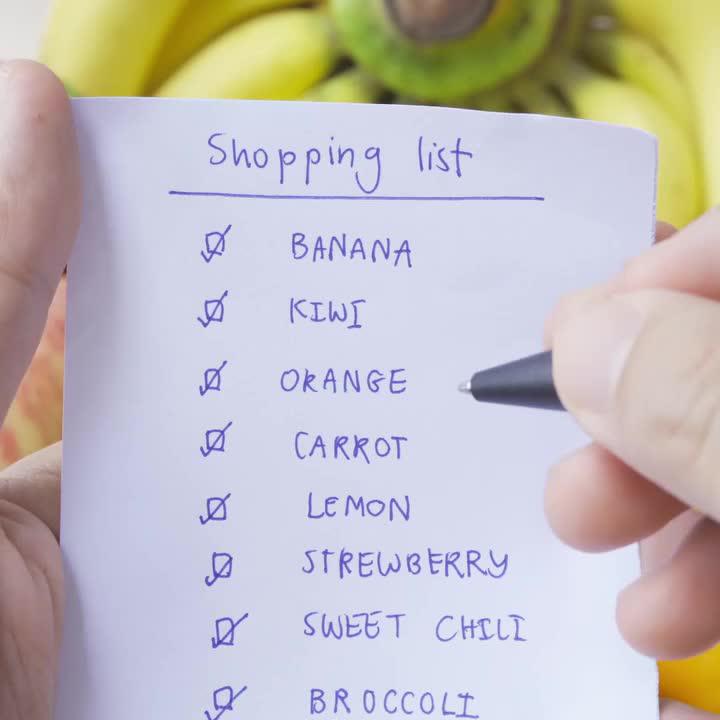 Shopping list
BANANA
KIWI
ORANGE
CARROT
LEMON
STREWBERRY
SWEET CHILI
BROCCOLI